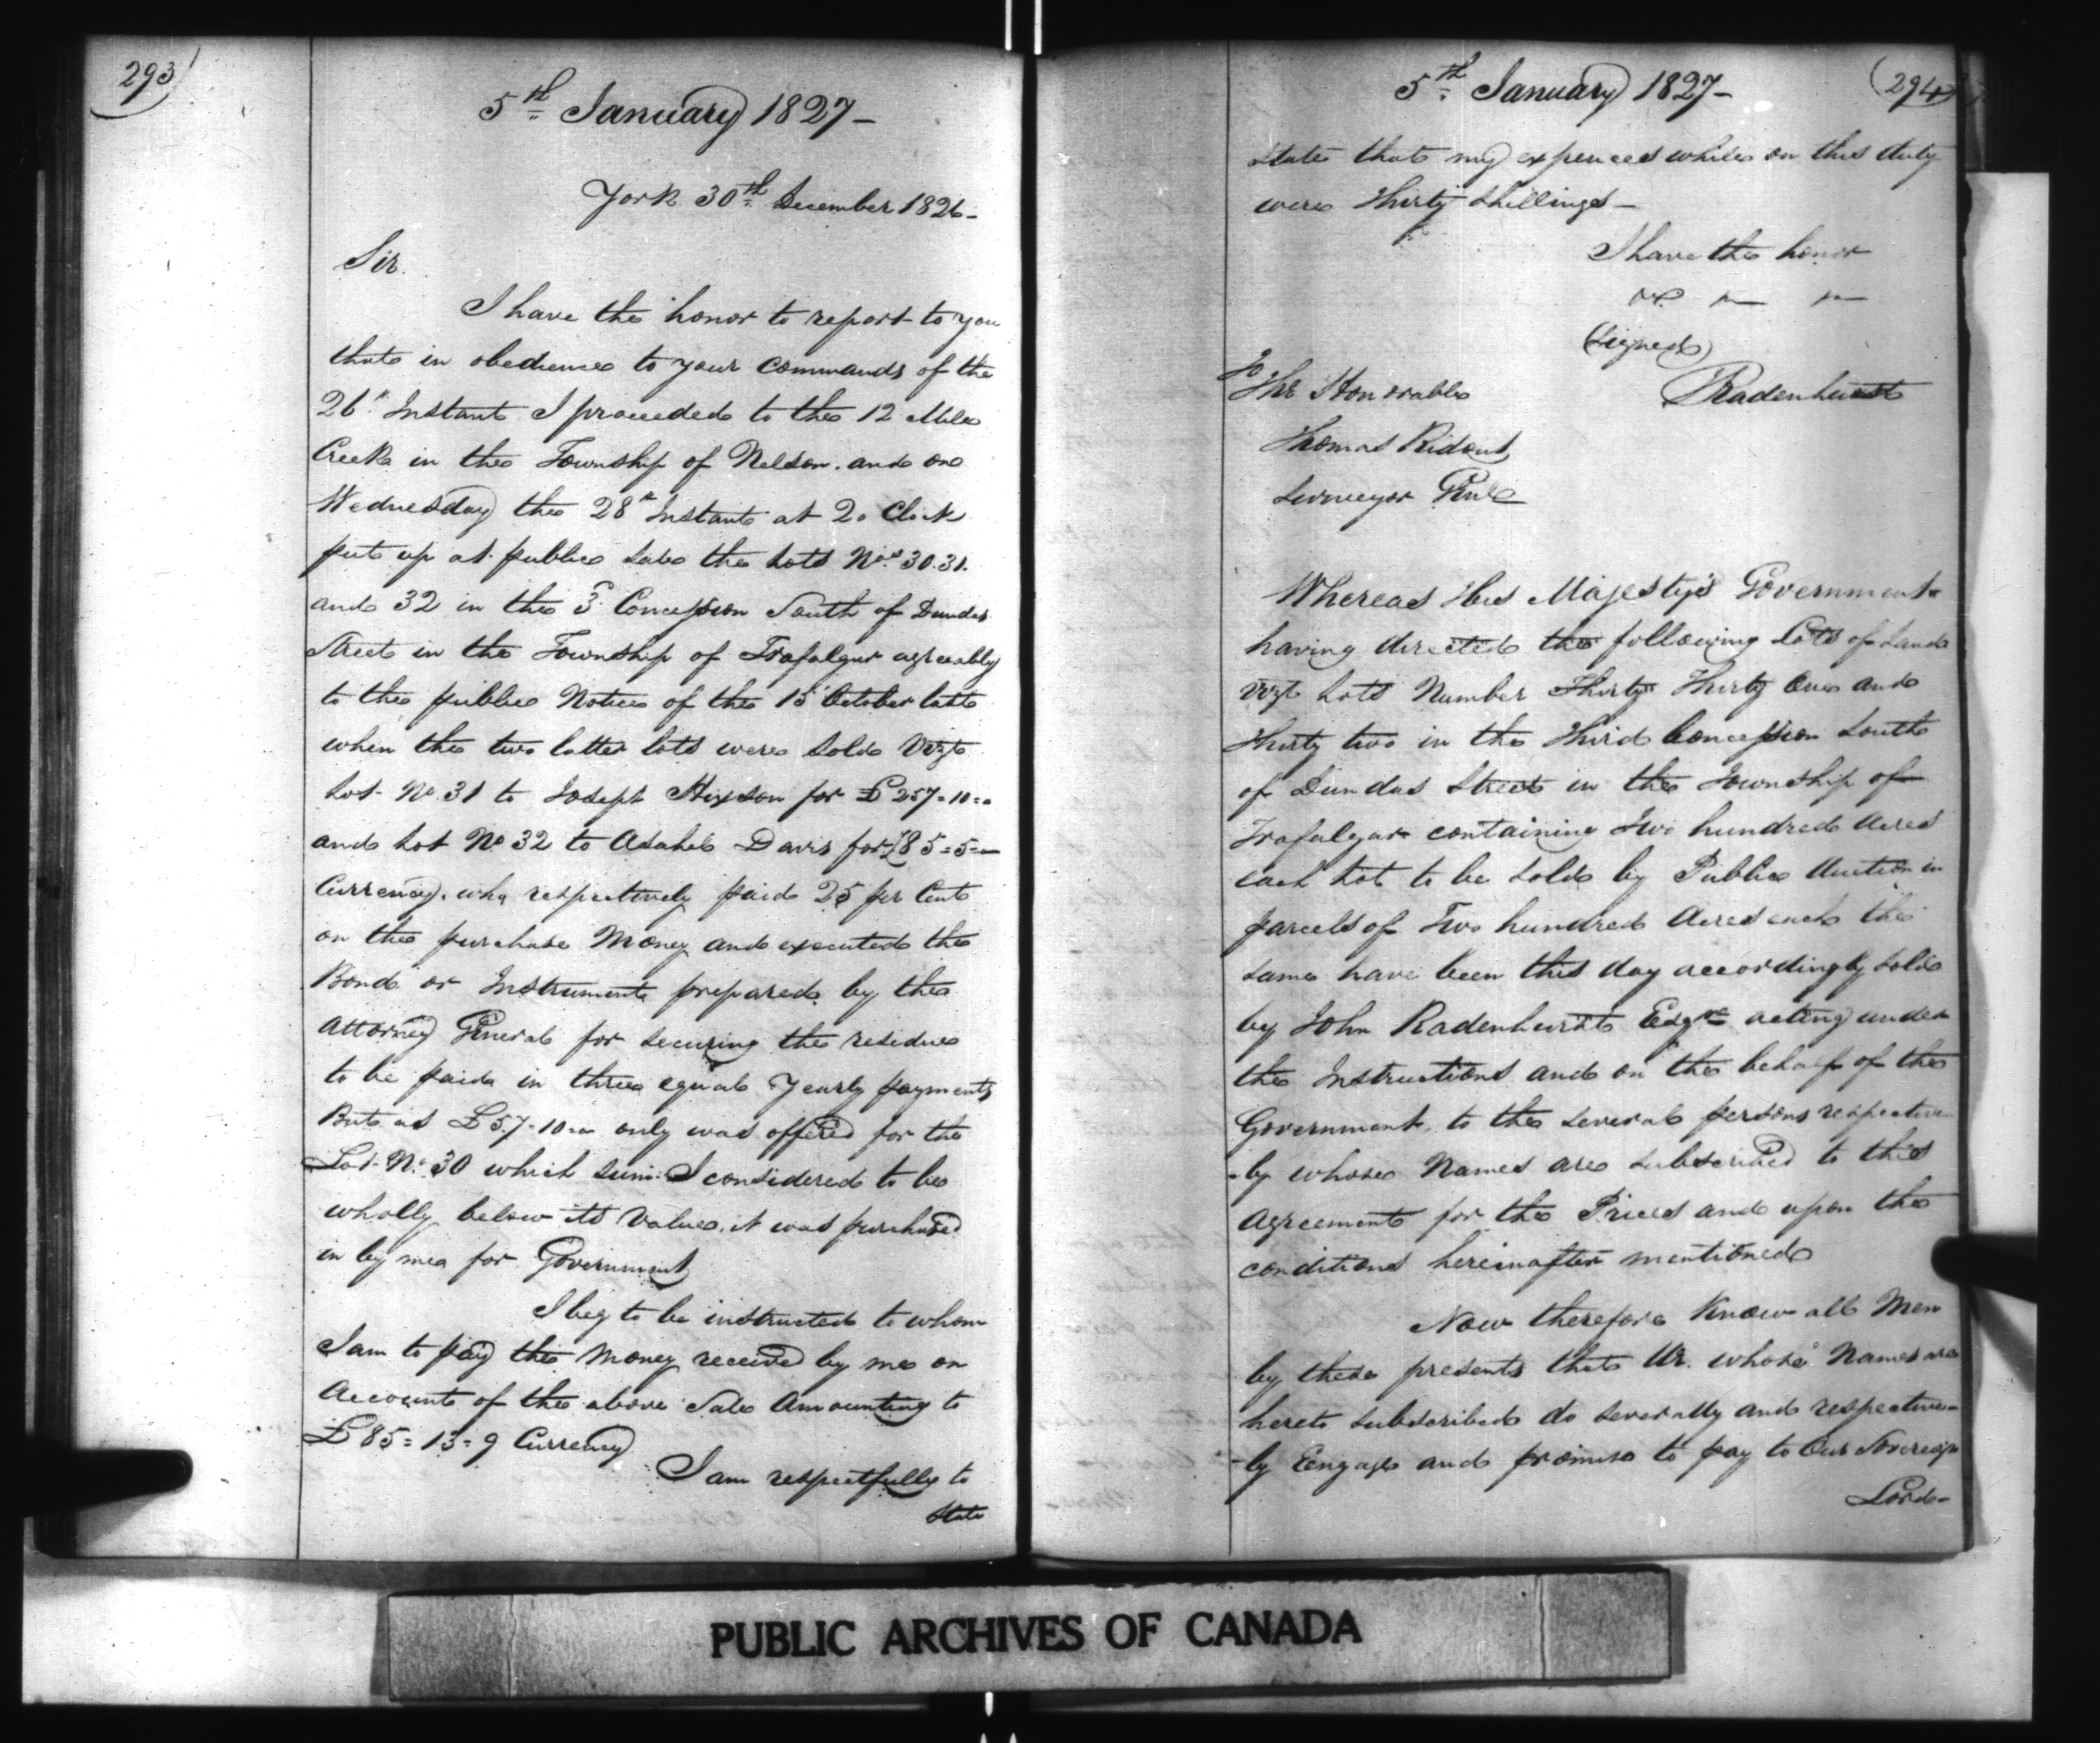 293
5th January 1827-
York 30th December 1826-
Sir
I have the honor to report to you
that in obedience to your Commands of the
26th Instant I proceeded to the 12 Mile
Creek in the Township of Nelson. and on
Wednesday the 28th Instant at 2o Clock
put up at public Sale the Lots Nos. 30.31.
and 32 in the 3d Concession South of Dundas
Street in the Township of Trafalgar agreeably
to the public Notice of the 15 October last
when the two latter lots were Sold Vizt
Lot No 31 to Joseph Hixson for £257=10=0
and Lot No 32 to Asahel Davis for £85=5=
Currency. who respectively paid 25 per Cent
on the purchase Money and executed the
Bond or Instrument prepared by the
Attorney General for securing the residue
to be paid in three equal Yearly payments
But as £57-10= only was offered for the
Lot No. 30 which sum I considered to be
wholly below its Value, it was purchased
in by me for Government
I beg to be instructed to whom
I am to pay the Money received by me on
Account of the above Sale Amounting to
£85=13=9 Currency
I am respectfully to
State
5th January 1827-
294
State that my expences while on this duty
were Thirty Shillings-
I have the honor
&c
(Signed)
To
The Honorable
Radenhurst
Thomas Ridout
Surveyor Genl
Whereas His Majesty's Government
having directed the following Lots of Land
Vizt Lots Number Thirty Thirty One and
Thirty two in the Third Concession South
of Dundas Street in the Township of
Trafalgar containing Two hundred Acres
each Lot to be Sold by Public Auction in
parcels of Two hundred Acres each the
same have been this day accordingly Sold
by John Radenhurst Esqre acting under
the Instructions and on the behalf of the
Government, to the several persons respective
-ly whose Names are subscribed to this
Agreement for the Prices and upon the
conditions hereinafter mentioned
Now therefore Know all Men
by these presents that We. whose Names are
hereto subscribed do severally and respective-
-ly Engage and promise to pay to Our Sovereign
Lord-
PUBLIC ARCHIVES OF CANADA